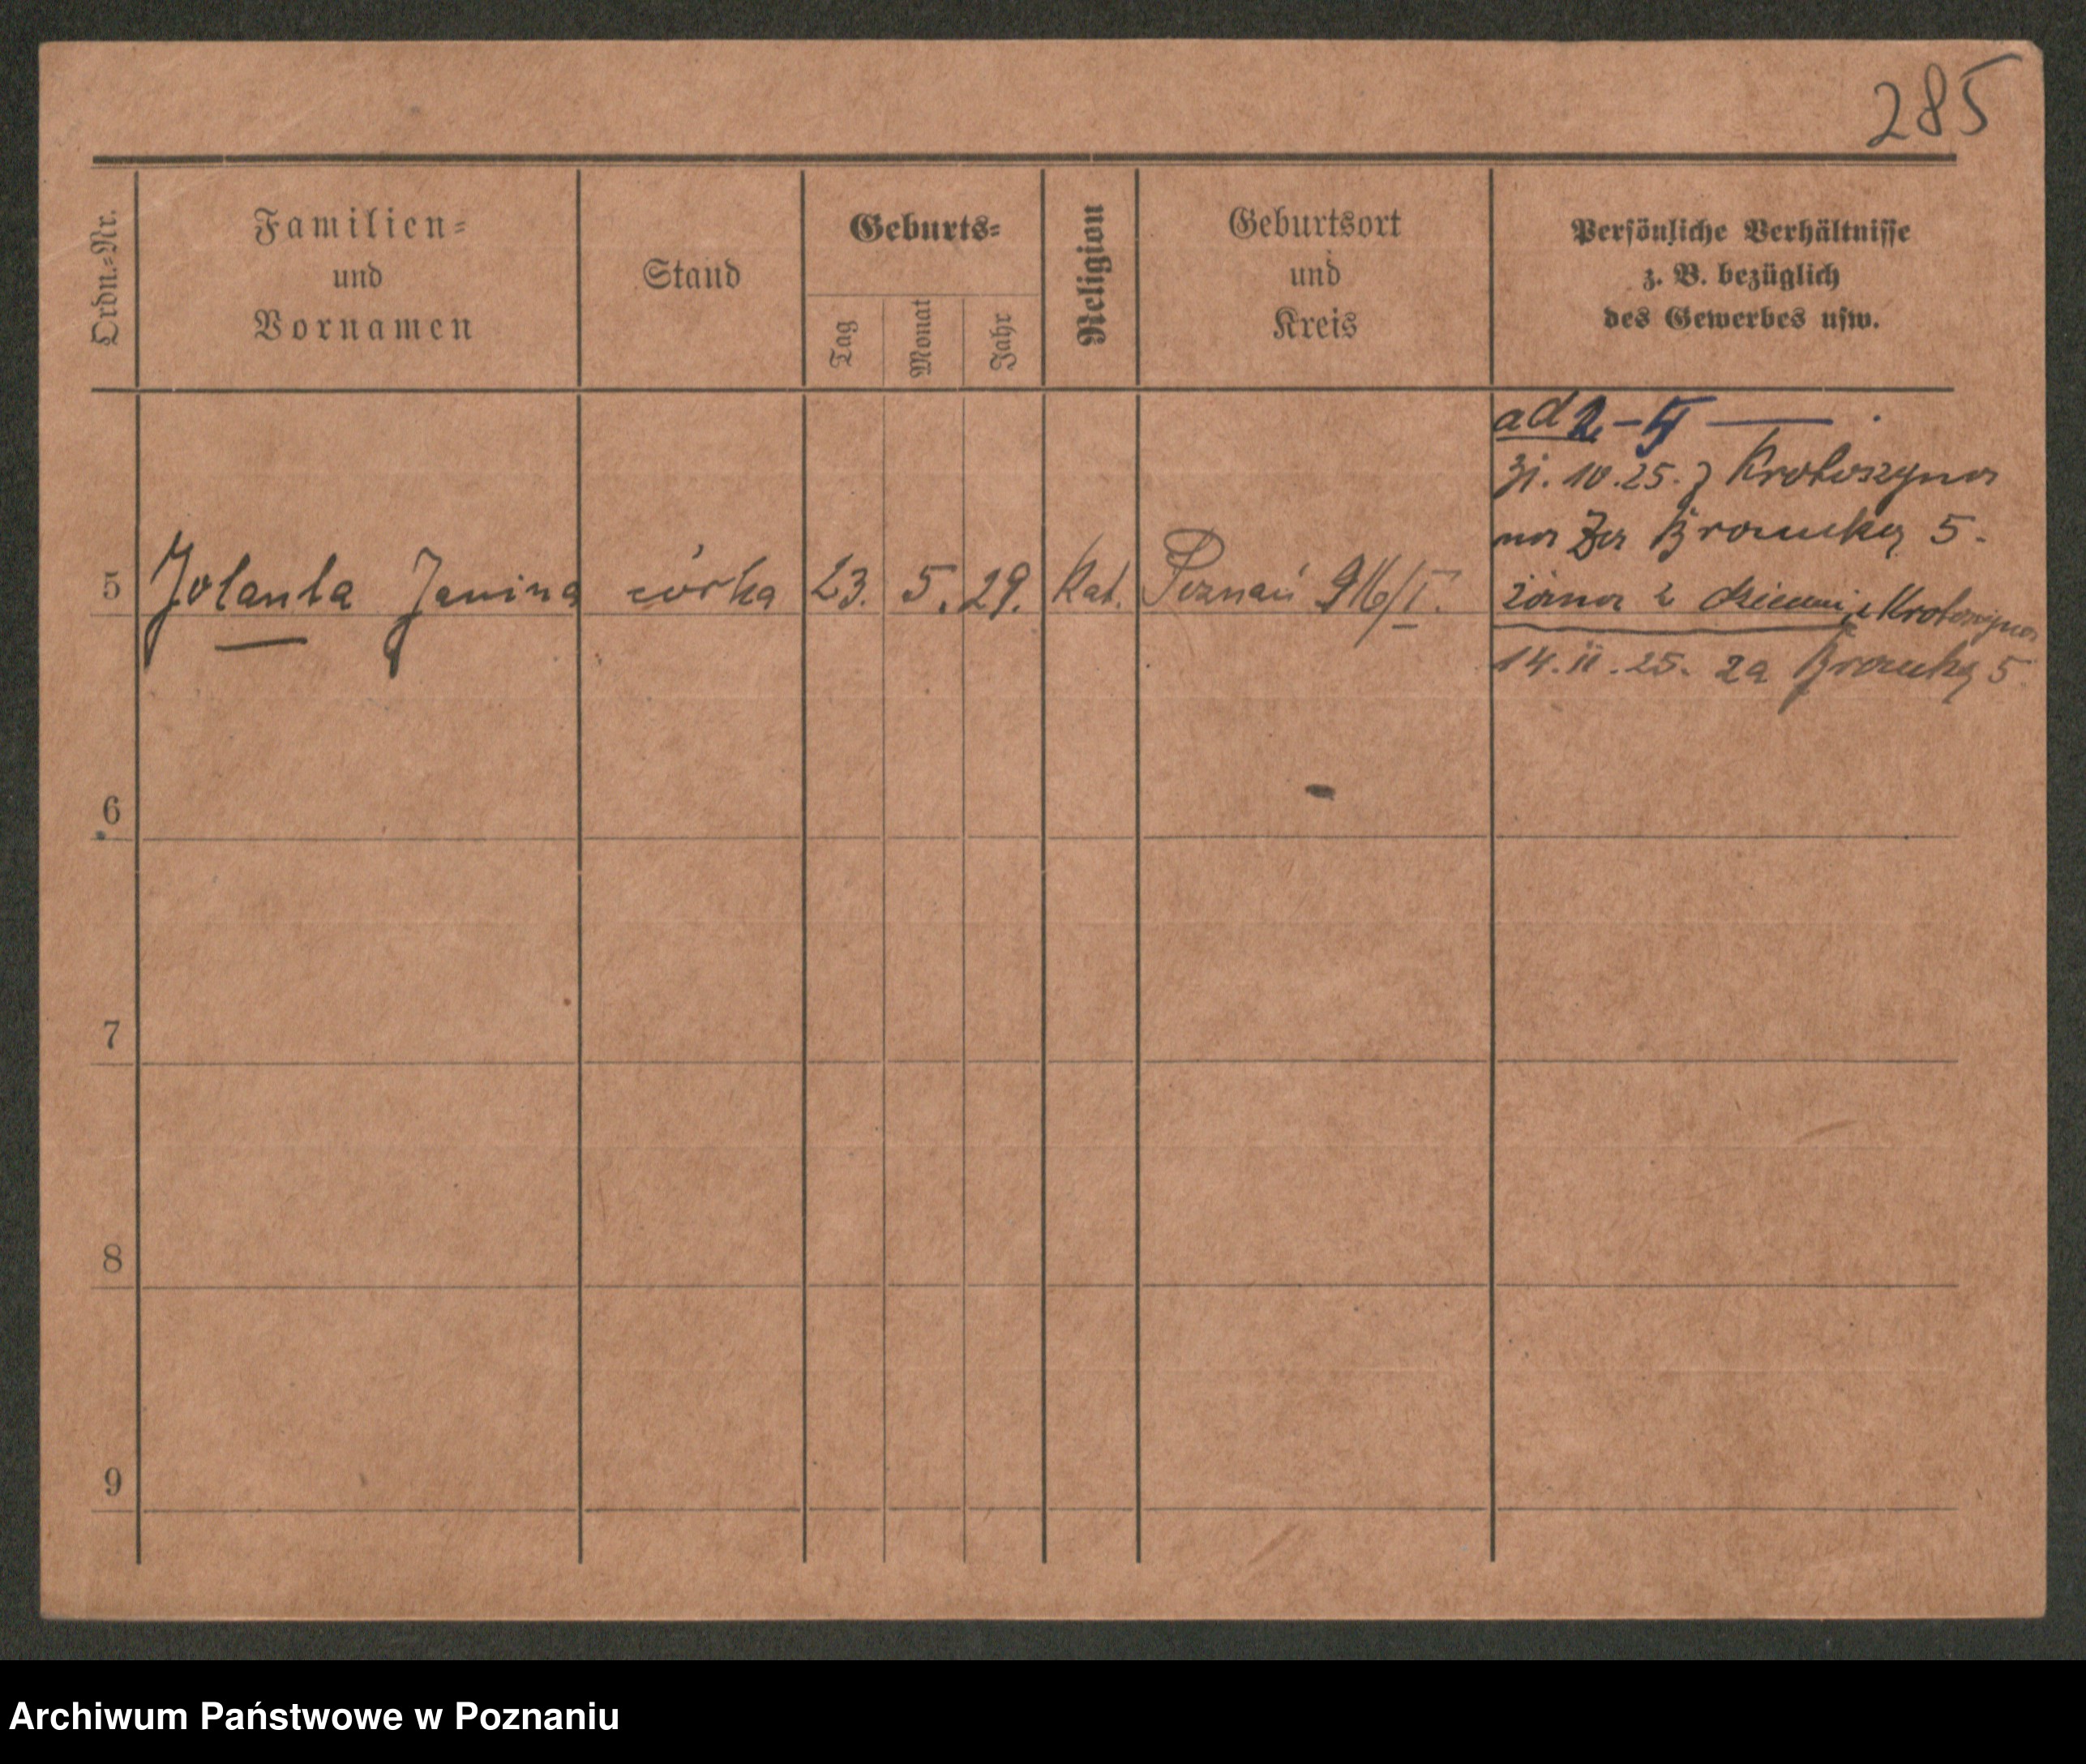 285
Ordn.-Nr.
Familien-
und
Vornamen
Stand
Geburts-
Tag
Monat
Jahr
Religion
Geburtsort
und
Kreis
Persönliche Verhältnisse
z. B. bezüglich
des Gewerbes usw.
ad 2-5
31.10.25. z Krotoszyna
na 5.
5 Jolanta Janina córka 23. 5. 29. Kat. Poznań 916/I.
żona z dziećmi z Krotoszyna
14.11.25. 5
6
7
8
9
Archiwum Państwowe w Poznaniu